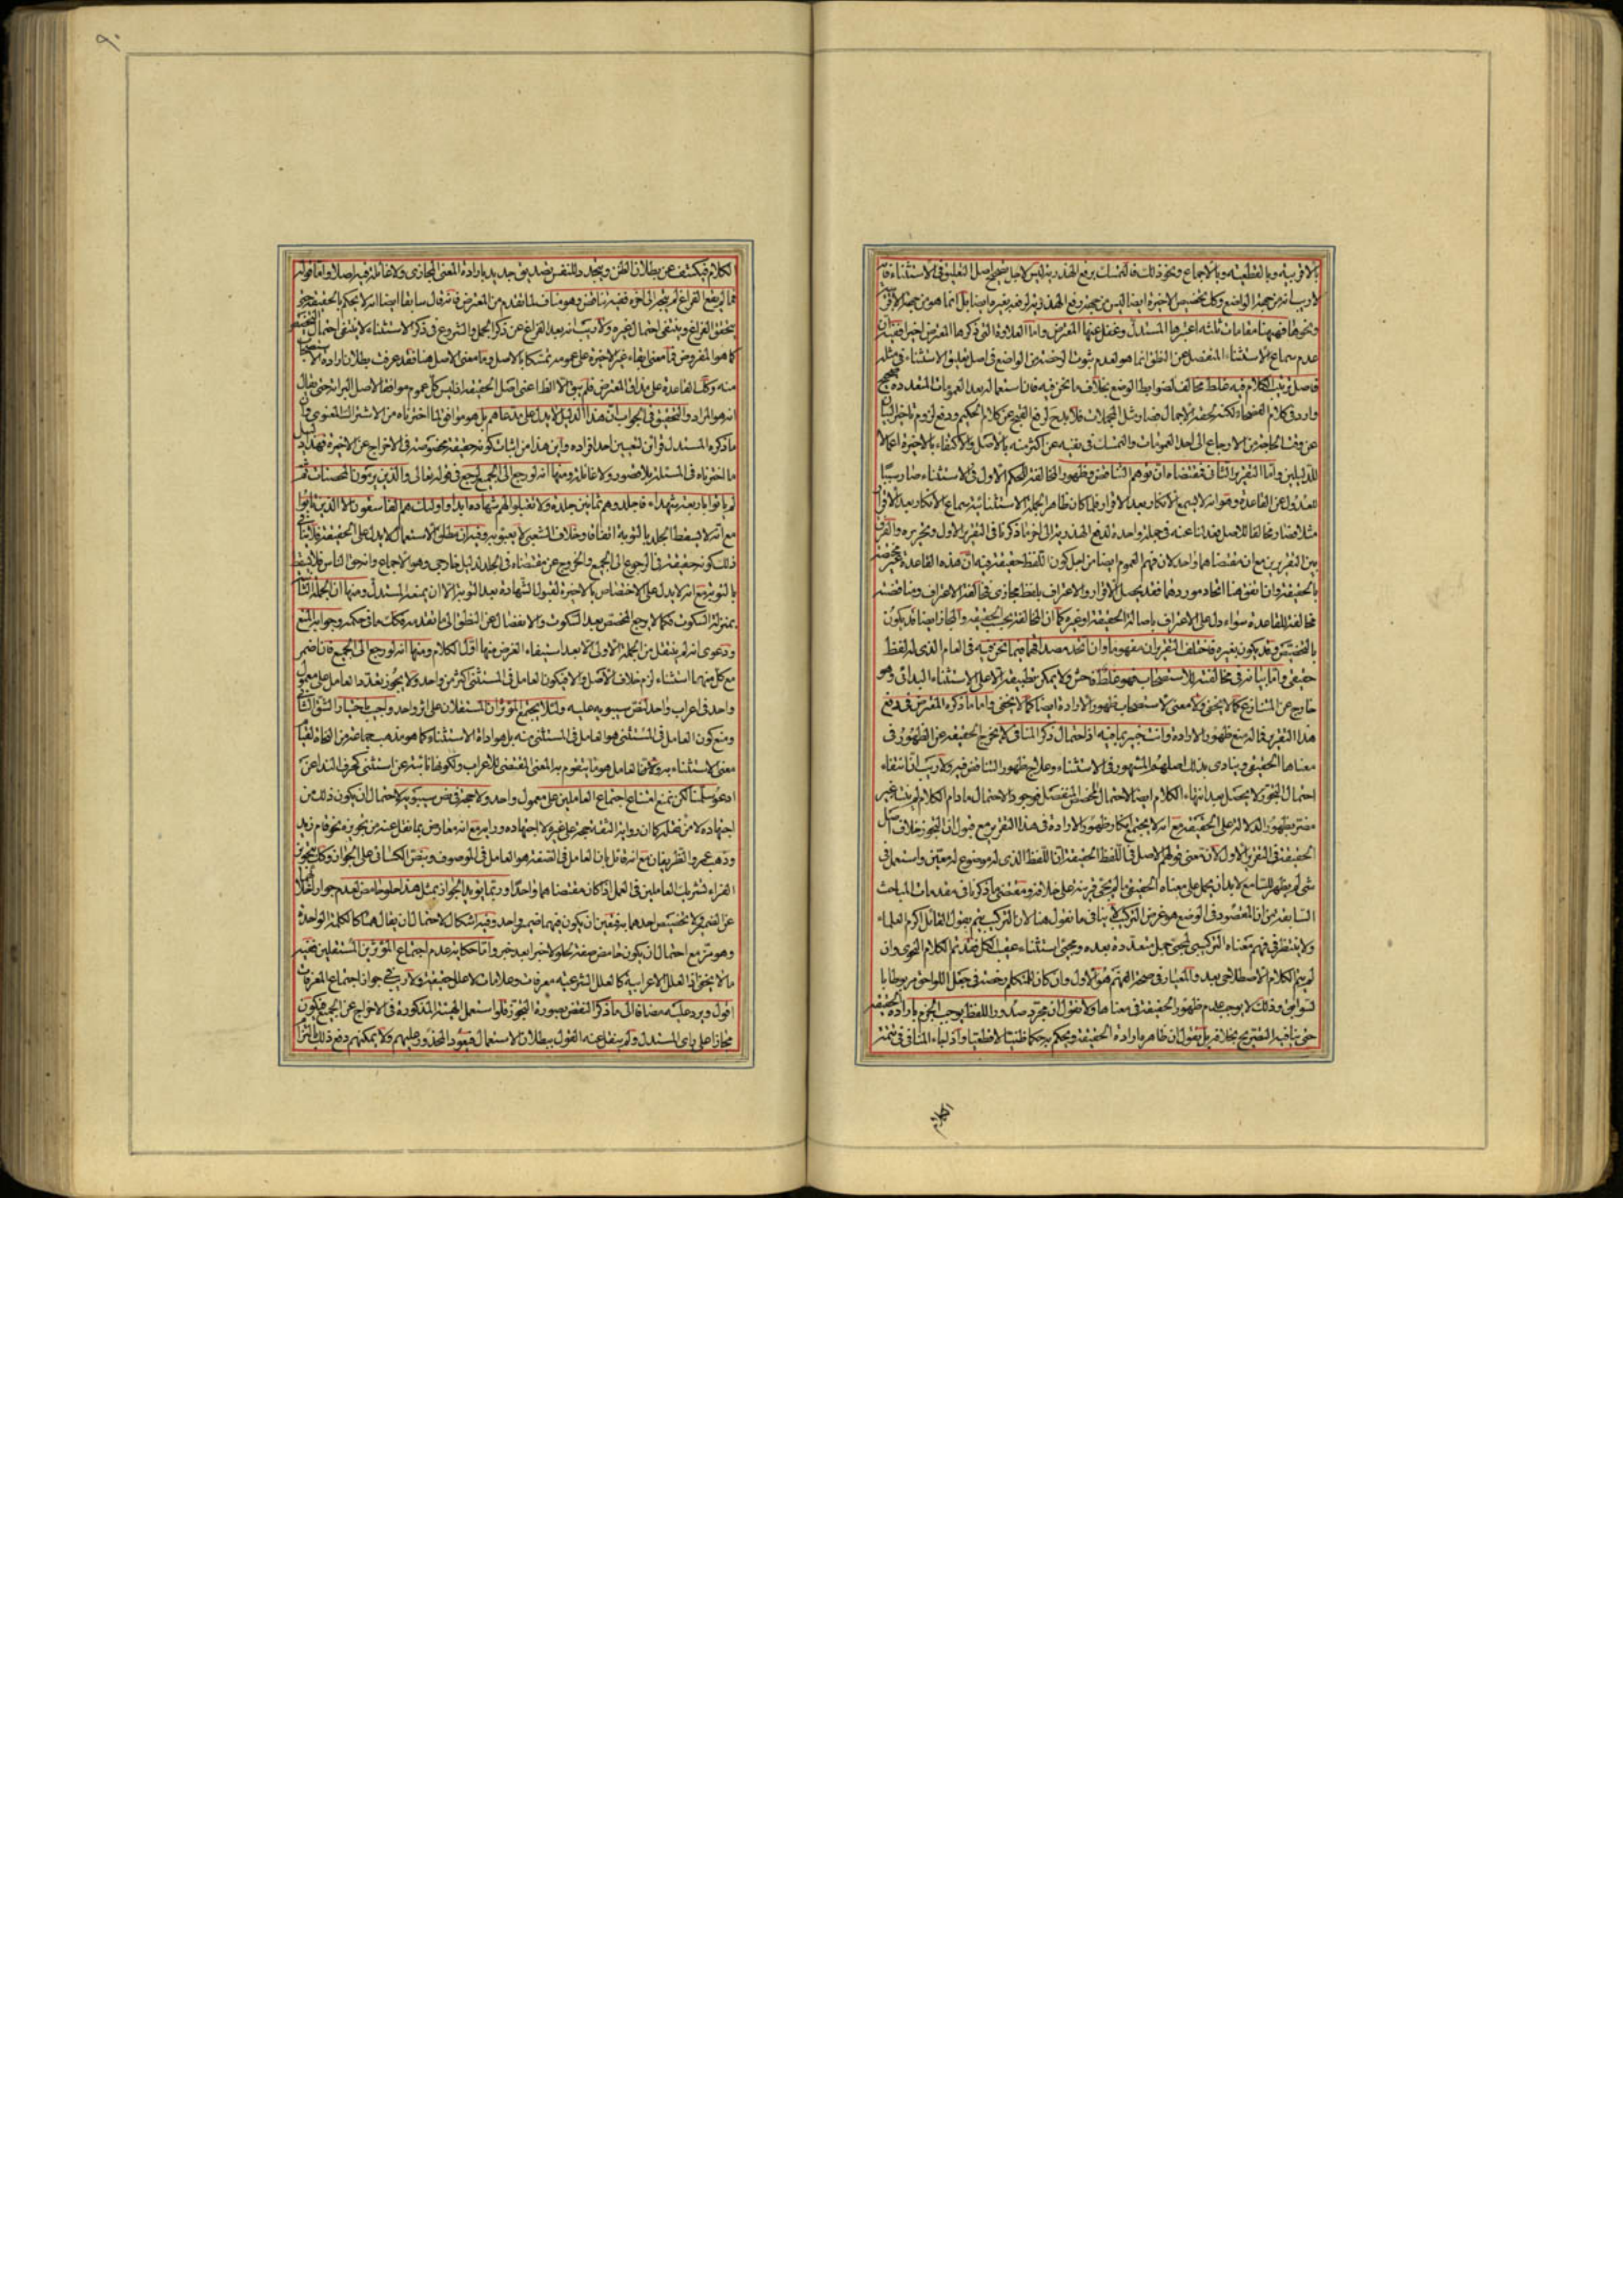 بالاقربية وبالقطعية وبالاجماع ونحو ذلك فالتمسك برفع الهذرية ليس لاجل تصحيح اصل التعليق في الاستثناء فانه
لا ريب انه من جهة الواضع وكل تخصيص الاخيرة ايضا ليس من جهة رفع الهذرية لرفعه بغيره ايضا بل انما هو من جهة الاقربية
ونحوها فههنا مقامات ثلثة اعتبرها المستدل وغفل عنها المعترض واما العلاوة التي ذكرها المعترض اخيرا ففيه ان
عدم سماع الاستثناء المنفصل عن النطق انما هو لعدم ثبوت الرخصة من الواضع في اصل تعليق الاستثناء في مثله
فاصل ترتيب الكلام فيه غلط مخالف لضوابط الوضع بخلاف ما نحن فيه فان استعماله بعد العمومات المتعددة صحيح
وارد في كلام الفصحاء لكنه
عن وقت الحاجة من الارجاع الى احد العمومات والتمسك في نفيه عن اكثر منه بالاصل والاكتفاء بالاخيرة اعمالا
للدليلين واما التقرير الثاني فمقتضاه ان توهم التناقض وظهور المخالفة للحكم الاول في الاستثناء صار سببا
للعدول عن القاعدة وهو انه لا يسمع الانكار بعد الاقرار فلما كان ظاهر الجملة الاستثنائية سماع الانكار بعد الاقرار
بين التقريرين مع ان مقتضاهما واحد لان فهم العموم ايضا من اجل كون اللفظ حقيقة فيه ان هذه القاعدة
مخالفة للقاعدة سواء دل على الاعتراف باصالة الحقيقة او غيره كما ان المخالفة
حقيقي واما بيانه في مخالفته للاستصحاب فهو غلط فاحش ولا يمكن تطبيقه الا على الاستثناء البدائي وهو
خارج عن المتنازع كما لا يخفى ولا معنى لاستصحاب ظهور الارادة ايضا كما لا يخفى واما ما ذكره المعترض في دفع
هذا التقرير فماله منع ظهور الارادة وانت خبير بما فيه اذ احتمال ذكر المنافي لا يخرج الحقيقة عن الظهور في
معناها الحقيقي وينادي بذلك اصلهم المشهور في الاستثناء وعلاج ظهور التناقض فيه ولا ريب ان انتفاء
احتمال التجوز لا يحصل بعد انتهاء الكلام ايضا لاحتمال المخصص المنفصل
مضر بظهور الدلالة على الحقيقة مع انه لا يجتمع انكار ظهور الارادة في هذا التقرير مع قبول ان التجوز خلاف اصل
الحقيقة في التقرير الاول لان معنى قولهم الاصل في اللفظ الحقيقة ان اللفظ الذي له موضوع له معين واستعمل في
شيء لم يظهر للسامع لا بد ان يحمل على معناه الحقيقي ما لم يجئ قرينة على خلافه ومقتضى ما ذكرنا في مقدمات المباحث
السابقة من ان المقصود في الوضع هو غرض التركيب لا ينافي ما نقول هنا لان التركيب يتم بقول القائل اكرم العلماء
ولا ينتظر في فهم معناه التركيبي لمجيء جمل متعددة بعده ومجيء استثناء عقيب الكل فقد تم الكلام النحوي وان
لم يتم الكلام الاصطلاحي بعد والمعيار في صحة الفهم هو الاول وان كان للمتكلم رخصة في جعل اللواحق مربوطا با
لسوابق وذلك لا يوجب عدم ظهور الحقيقة في معناها ولا نقول ان مجرد صدور اللفظ يوجب الجزم بارادة الحقيقة
حتى ينافيه التصريح بخلافه بل نقول ان ظاهره ارادة الحقيقة ونحكم به حكما ظنيا لا قطعيا
الكلام
٩٠
الكلام فيكشف عن بطلان الظن ويتجدد للنفس تصديق جديد بارادة المعنى المجازي ولا غائلة فيه اصلا واما قوله
يتحقق الفراغ وينتفي احتمال غيره ولا ريب انه بعد الفراغ عن ذكر الجمل والشروع في ذكر الاستثناء لا ينتفي احتمال التخصيص
كما هو المفروض فما معنى ابقاء غير الاخيرة على عمومه تمسكا بالاصل وما معنى الاصل هنا فقد عرفت بطلان ارادة الاستصحاب
منه وكك القاعدة على مذاق المعترض فلم يبق الا الظاهر اعني اصل الحقيقة
انه هو المراد والتحقيق في الجواب ان هذا الدليل لا يدل على مدعاهم بل هو موافق لما اخترناه من الاشتراك المعنوي
ما ذكره المستدل قرائن لتعيين احد افراده واين هذا من اثبات كونه حقيقة مخصوصة في الاخراج عن الاخيرة فهذا دليل
ما اخترناه في المسئلة بلا قصور ولا غائلة ومنها انه لو رجع الى الجميع لرجع في قوله تعالى والذين يرمون المحصنات ثم
لم ياتوا باربعة شهداء فاجلدوهم ثمانين جلدة ولا تقبلوا لهم شهادة ابدا واولئك هم الفاسقون الا الذين تابوا
مع انه لا يسقط الجلد بالتوبة اتفاقا وخلاف الشعبي لا يعبؤ به وفيه ان مطلق الاستعمال لا يدل على الحقيقة فلا ينافي
ذلك كونه حقيقة في الرجوع الى الجميع والخروج عن مقتضاه في الجلد لدليل خارجي وهو الاجماع وانه حق الناس فلا يسقط
بالتوبة مع انه لا يدل على الاختصاص بالاخيرة لقبول الشهادة بعد التوبة الا ان يمنعه المستدل ومنها ان الجملة الثانية
بمنزلة السكوت فكما لا يرجع المخصص بعد السكوت والانفصال عن النطق الى ما تقدمه فكك ما في حكمه وجوابه المنع
ودعوى انه لم ينتقل من الجملة الاولى الا بعد استيفاء الغرض منها اول الكلام ومنها انه لو رجع الى الجميع فان اضمر
مع كل منهما استثناء لزم خلاف الاصل والا فيكون العامل في المستثنى اكثر من واحد ولا يجوز تعدد العامل على معمول
واحد في اعراب واحد لنص سيبويه عليه ولئلا يجتمع المؤثران المستقلان على اثر واحد واجيب باختيار الشق الثاني
ومنع كون العامل في المستثنى هو العامل في المستثنى منه بل هو اداة الاستثناء كما هو مذهب جماعة من النحاة لقيام
معنى الاستثناء به ولان العامل هو ما يتقوم به المعنى المقتضي للاعراب ولكونها نائبة عن استثني كحرف النداء عن
ادعو سلمنا لكن نمنع امتناع اجتماع العاملين على معمول واحد ولا حجة في نص سيبويه لاحتمال ان يكون ذلك من
اجتهاده لا من نقله كما ان رواية الثقة حجة على غيره لا اجتهاده ورايه مع انه معارض بما نقل عنه من تجويزه نحو قام زيد
وذهب عمرو الظريفان مع انه قائل بان العامل في الصفة هو العامل في الموصوف وبنص الكسائي على الجواز وكك تجويز
الفراء تشريك العاملين في العمل اذا كان مقتضاهما واحدا وربما يؤيد الجواز بمثل هذا حلو حامض لعدم جواز اخلاء
عن الضمير ولا تخصيص احدهما به فتعين ان يكون فيهما ضمير واحد وفيه اشكال لاحتمال ان يقال هما كالكلمة الواحدة
وهو مز مع احتمال ان يكون حامض صفة لحلو لا خبرا بعد خبر واما حكاية عدم اجتماع المؤثرين المستقلين ففيه
ما لا يخفى اذ العلل الاعرابية كالعلل الشرعية معرفات وعلامات لا علل حقيقية ولا ريب في جواز اجتماع المعرفات
اقول ويرد عليه مضافا الى ما ذكر النقض بصورة التجوز فلو استعمل الهيئة المذكورة في الاخراج عن الجميع فيكون
مجازا على راي المستدل ولم ينقل عنه القول ببطلان الاستعمال فيعود المحذور عليهم ولا يمكنهم دفع ذلك